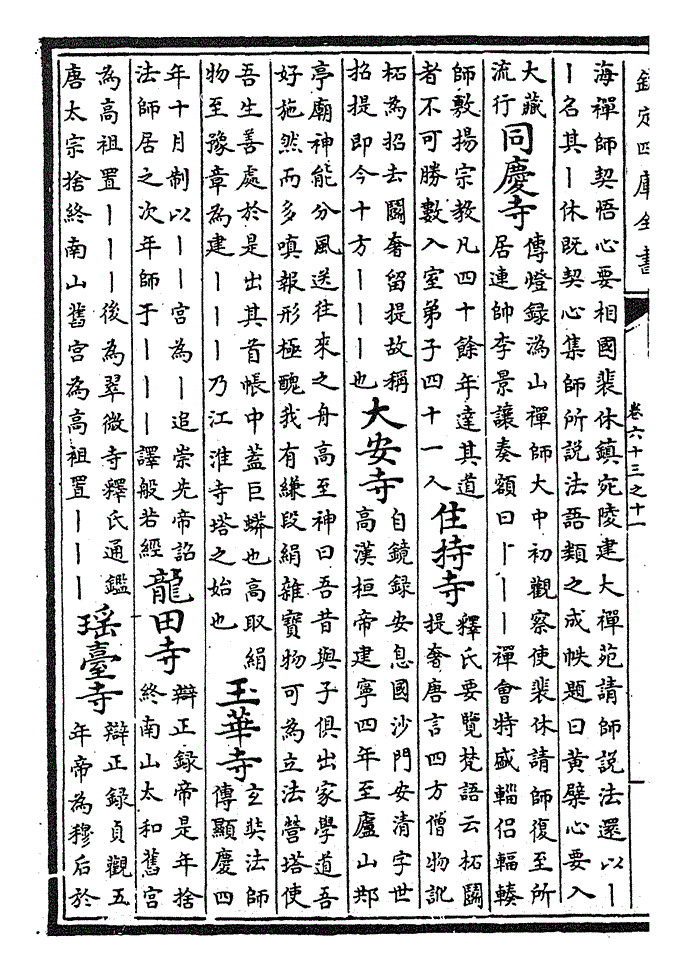 欽定四庫全書
卷六十三之十一
海禪師契悟心要相國裴休鎮宛陵建大禪苑請師說法還以丨
丨名其丨休既契心集師所說法語類之成帙題曰黄檗心要入
大藏
流行
同慶寺
傳燈録溈山禪師大中初觀察使裴休請師復至所
居連帥李景讓奏額曰丨丨丨禪會特盛輜侣輻輳
師敷揚宗教凡四十餘年達其道
者不可勝數入室弟子四十一人
住持寺
釋氏要覽梵語云柘鬭
提奢唐言四方僧物訛
柘為招去鬭奢留提故稱
招提即今十方丨丨丨也
大安寺
自鏡録安息國沙門安清字世
高漢桓帝建寧四年至廬山䢼
亭廟神能分風送往來之舟高至神曰吾昔與子俱出家學道吾
好施然而多嗔報形極醜我有縑段絹雜寳物可為立法營塔使
吾生善處於是出其首帳中蓋巨蟒也高取絹
物至豫章為建丨丨丨乃江淮寺塔之始也
玉華寺
玄奘法師
傳顯慶四
年十月制以丨丨宫為丨追崇先帝詔
法師居之次年師于丨丨丨譯般若經
龍田寺
辯正録帝是年捨
終南山太和舊宫
為高祖置丨丨丨後為翠微寺釋氏通鑑
唐太宗捨終南山舊宫為高祖置丨丨丨
瑶臺寺
辯正録貞觀五
年帝為穆后於